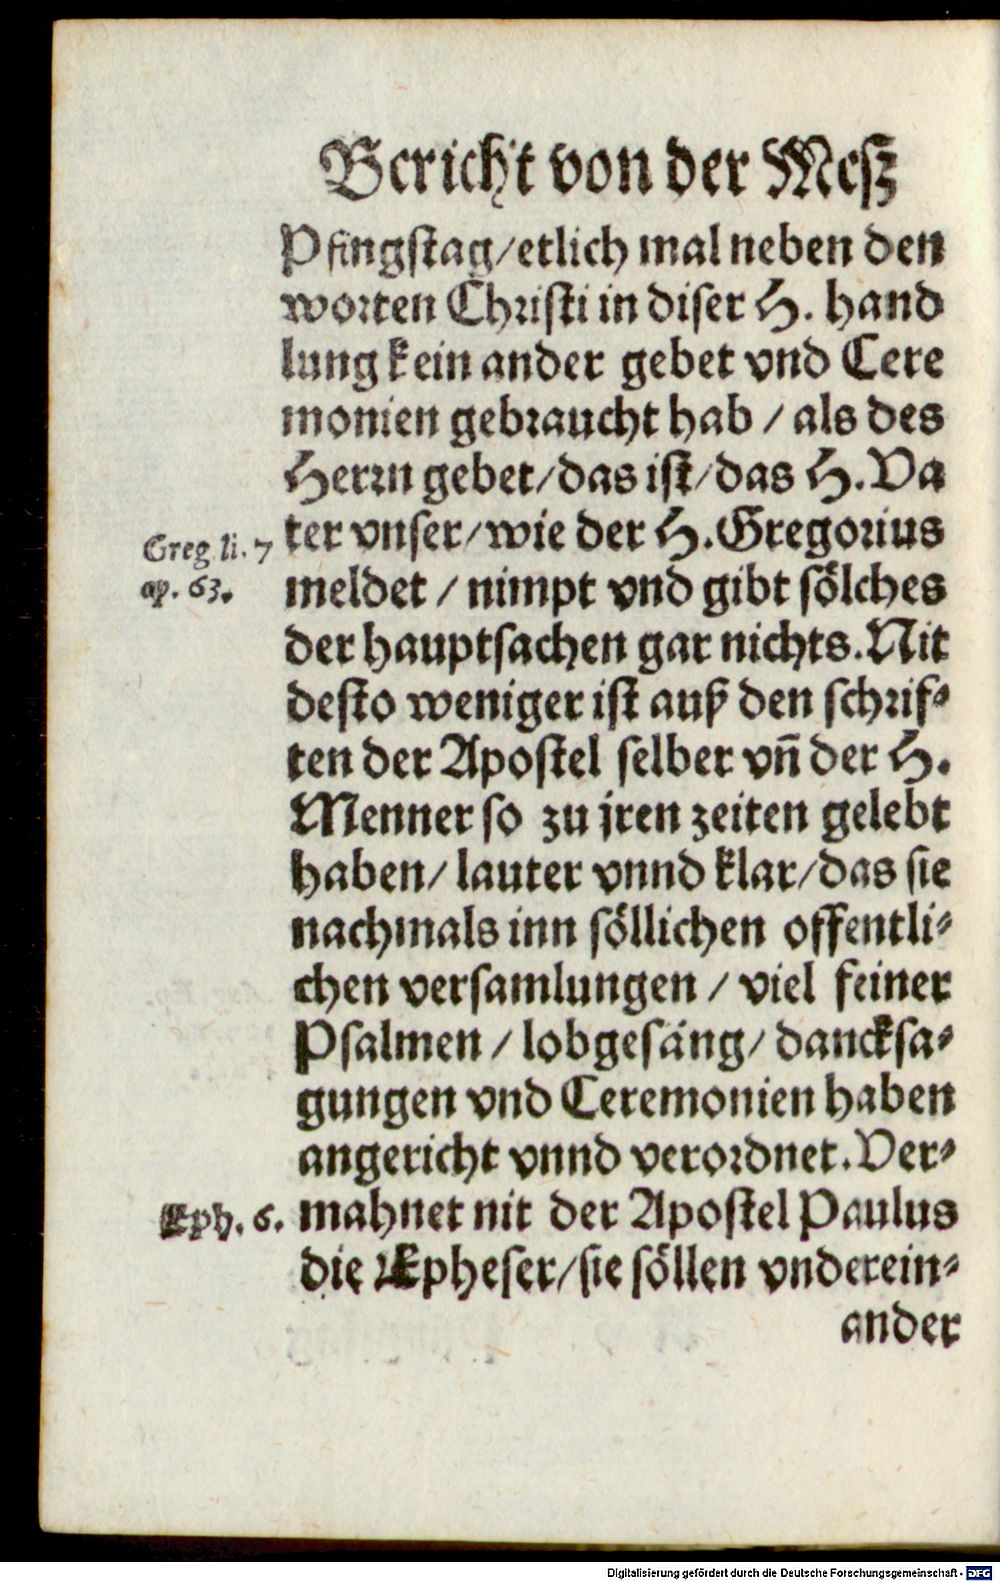 Bericht von der Mesz
Pfingstag/etlich mal neben den
worten Christi in diser H. hand
lung kein ander gebet vnd Cere
monien gebraucht hab / als des
Herrn gebet/das ist/das H. Va
Greg. li. 7
ter vnser/wie der H. Gregorius
ap. 63.
meldet / nimpt vnd gibt sölches
der hauptsachen gar nichts. Nit
desto weniger ist auß den schrif-
ten der Apostel selber vn̄ der H.
Menner so zu jren zeiten gelebt
haben/ lauter vnnd klar/das sie
nachmals inn söllichen offentli-
chen versamlungen / viel feiner
Psalmen / lobgesäng/ dancksa-
gungen vnd Ceremonien haben
angericht vnnd verordnet. Ver-
Eph. 6.
mahnet nit der Apostel Paulus
die Epheser/sie söllen vnderein-
ander
Digitalisierung gefördert durch die Deutsche Forschungsgemeinschaft - DFG